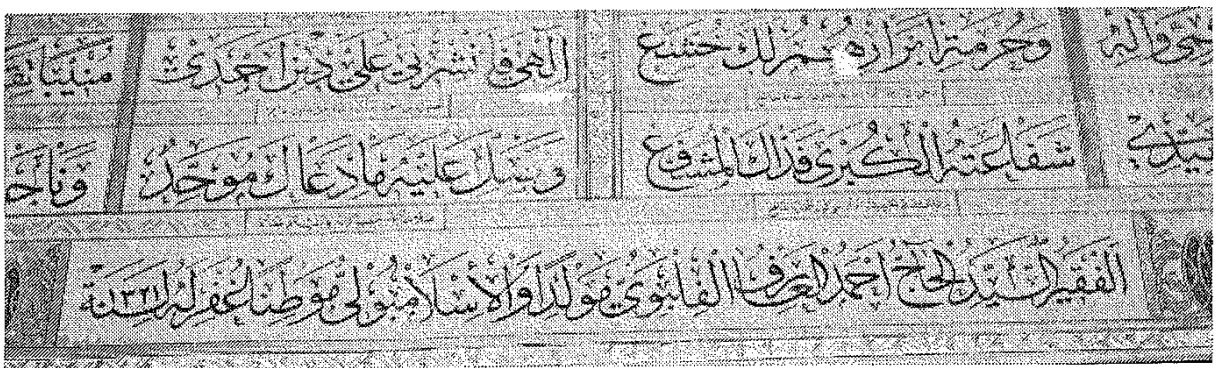 وَآلِهِ وَحُرْمَةِ أَبْرَارٍ هُمْ لَكَ خُشَّعُ إِلٰهِي فَانْشُرْنِي عَلَى دِينِ أَحْمَدٍ مُنِيبًا
شَفَاعَتَهُ الْكُبْرَى فَذَاكَ الْمُشَفَّعُ وَصَلِّ عَلَيْهِ مَا دَعَاكَ مُوَحِّدٌ
الفقير السيد الحاج أحمد العارف الفلبوي مولدًا والاسلامبولي موطنًا غفر له سنة ١٣٢١